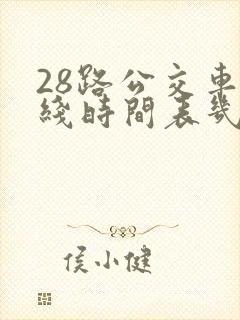 28路公交車
綫時間表幾
侯小健